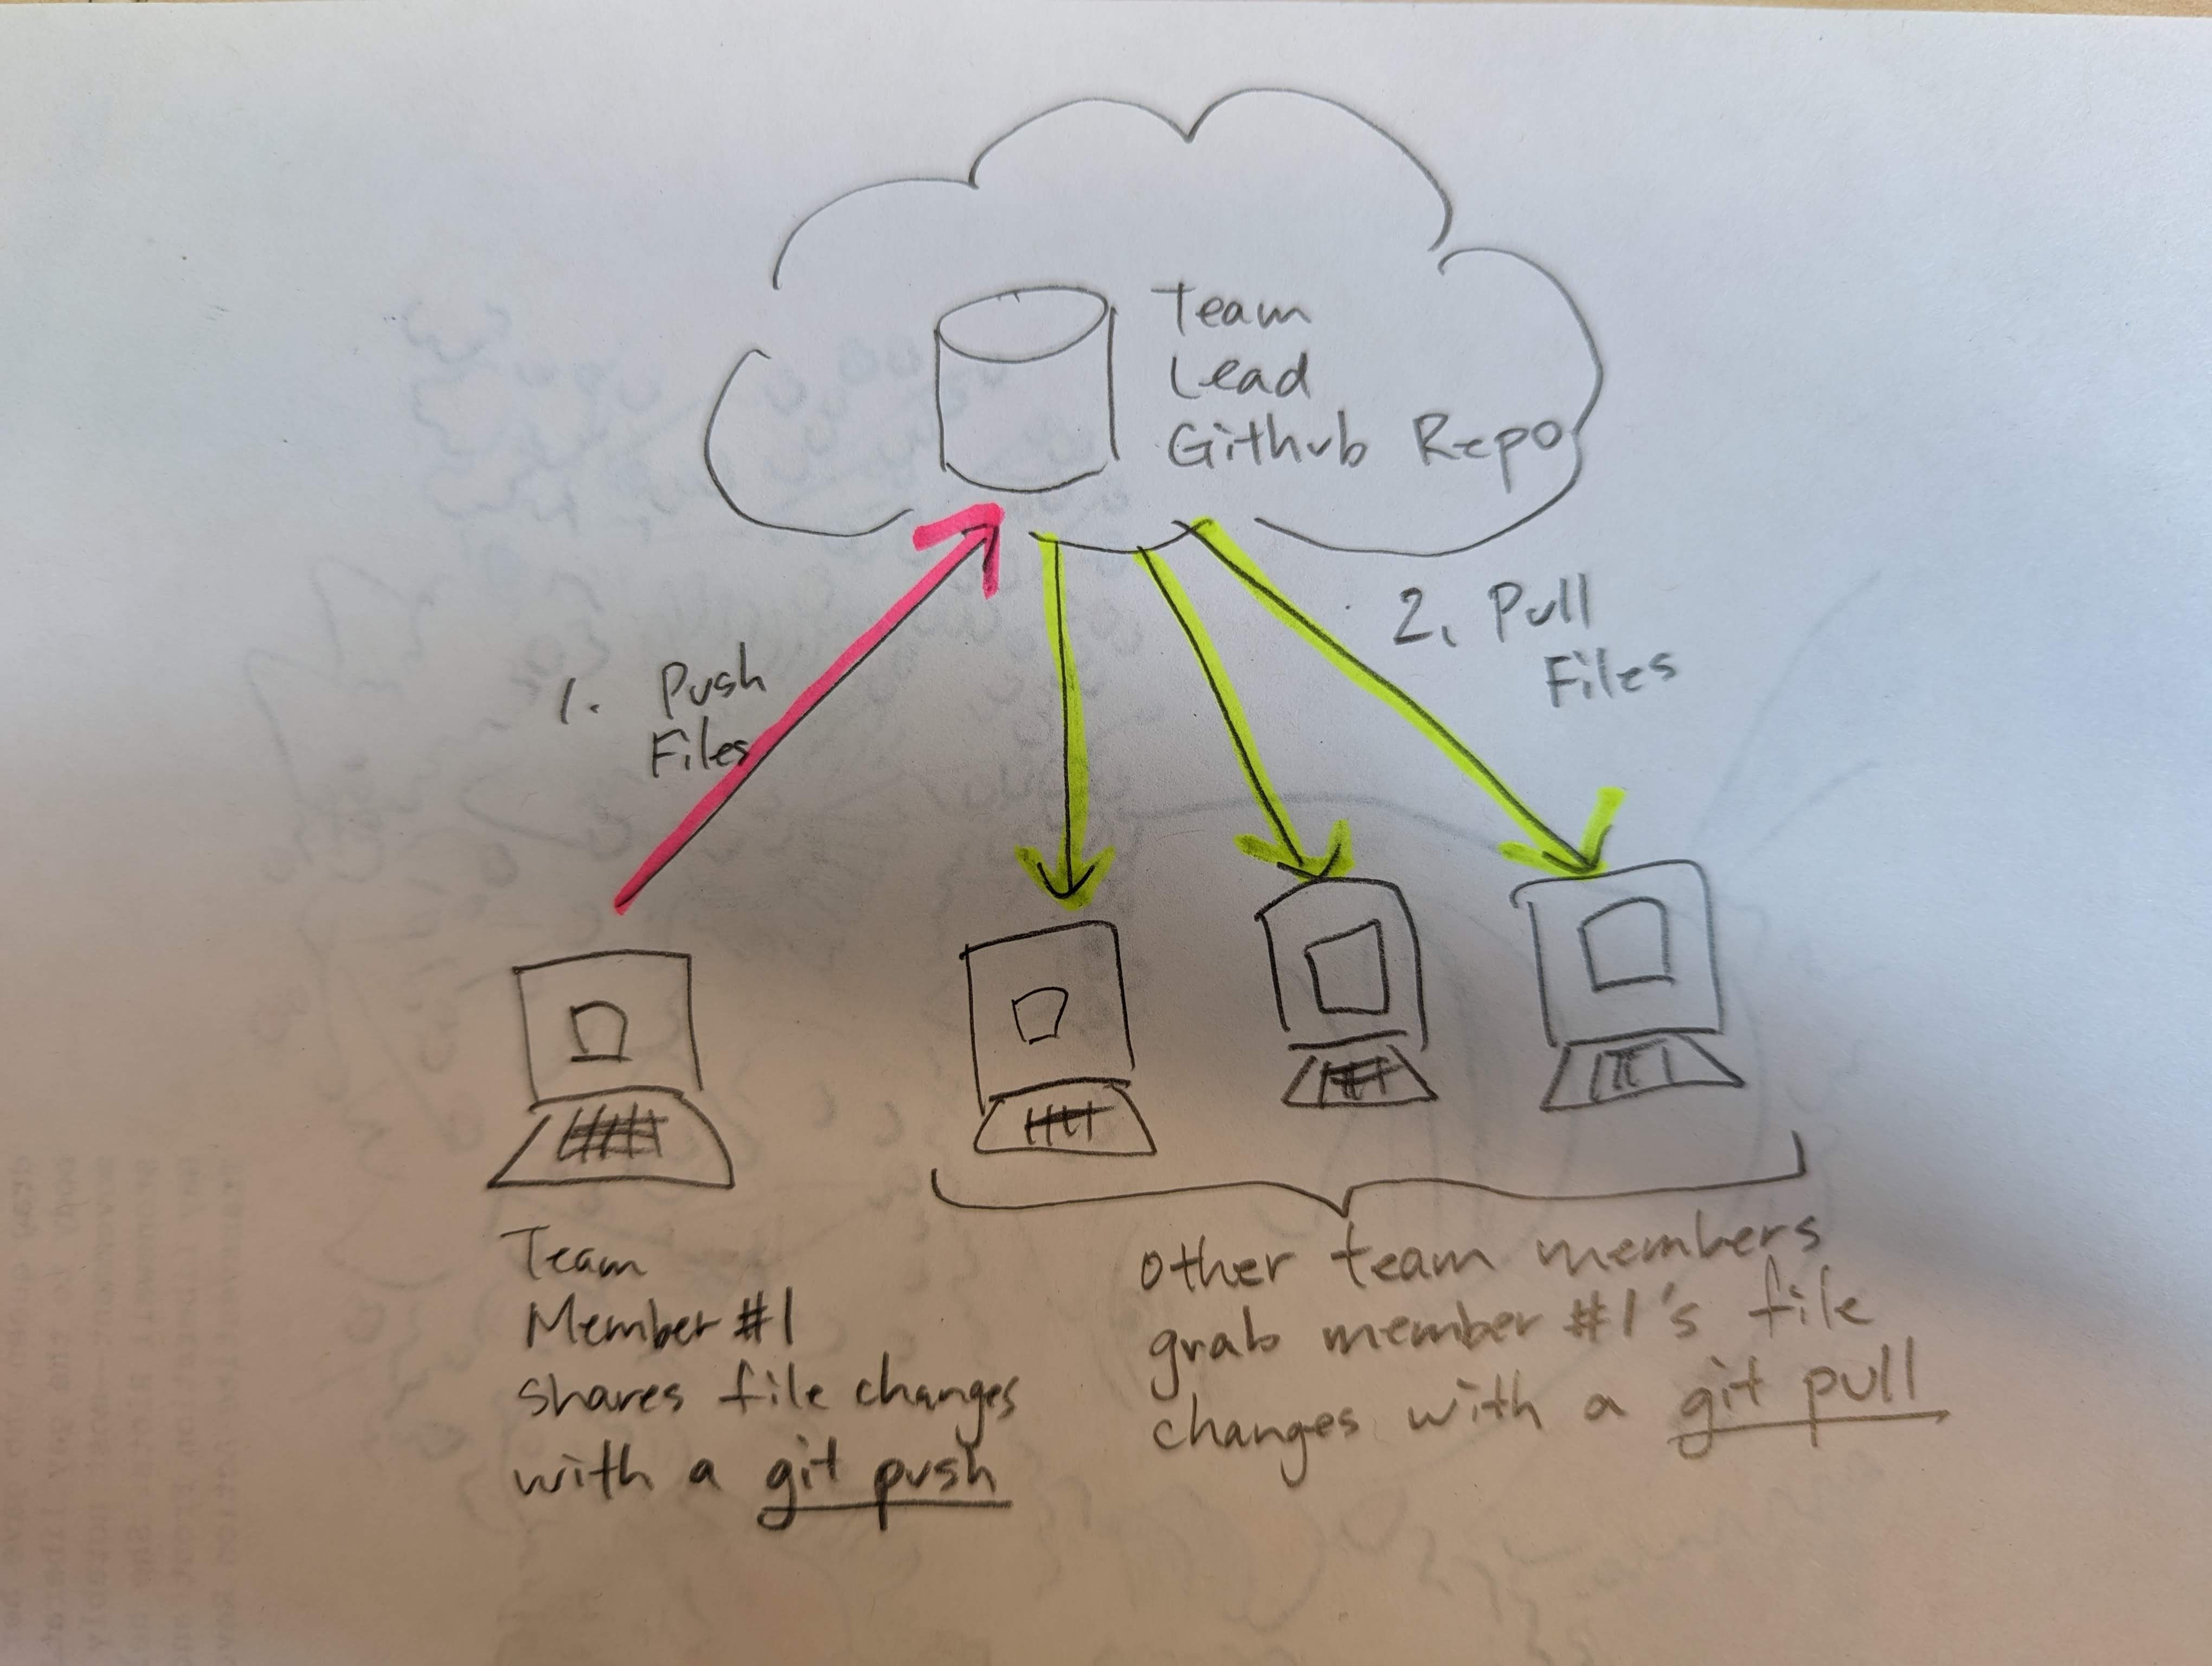 Team
Lead
Github Repo
1. Push
Files
2. Pull
Files
Team
Member #1
shares file changes
with a git push
other team members
grab member #1's file
changes with a git pull